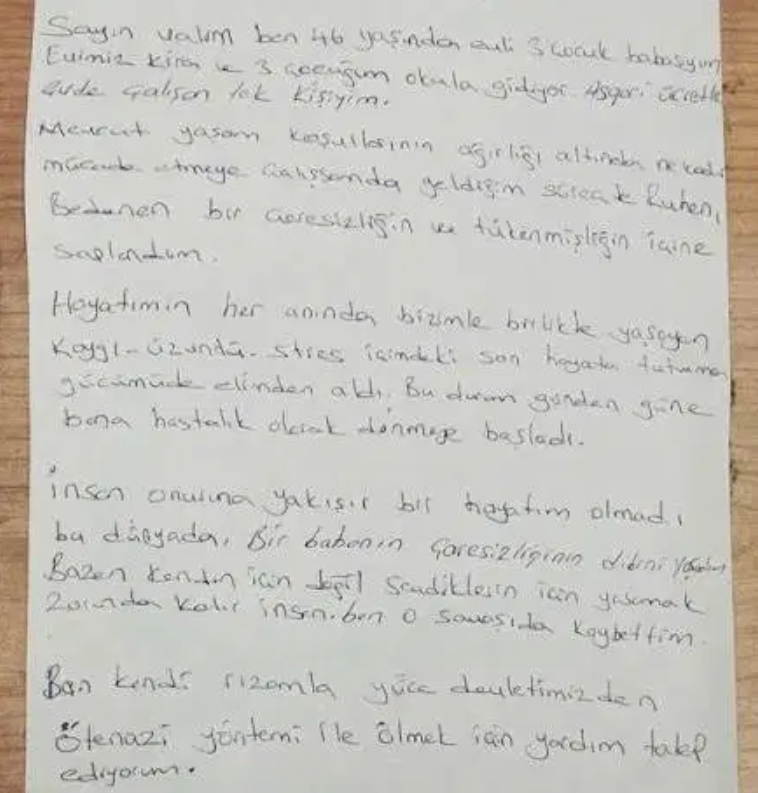 Sayın valim ben 46 yaşından evli 3 çocuk babasıyım
Evimiz kira ve 3 çocuğum okula gidiyor. Asgari ücretle
evde çalışan tek kişiyim.
Mevcut yaşam koşullarının ağırlığı altında ne kadar
mücade etmeye çalışsamda geldiğim süreçte Ruhen,
Bedenen bir çaresizliğin ve tükenmişliğin içine
saplandım.
Hayatımın her anında bizimle birlikte yaşayan
Kaygı-üzüntü-stres içimdeki son hayata tutunma
gücümüde elinden aldı. Bu durum günden güne
bana hastalık olarak dönmeye başladı.
insan onuruna yakışır bir hayatım olmadı
bu dünyada, Bir babanın çaresizliğinin dibini
Bazen kendin için değil sevdiklerin için yaşamak
Zorunda kalır insan. ben o savaşıda kaybettim.
Ben kendi rızamla yüce devletimizden
Ötenazi yöntemi ile ölmek için yardım talep
ediyorum.